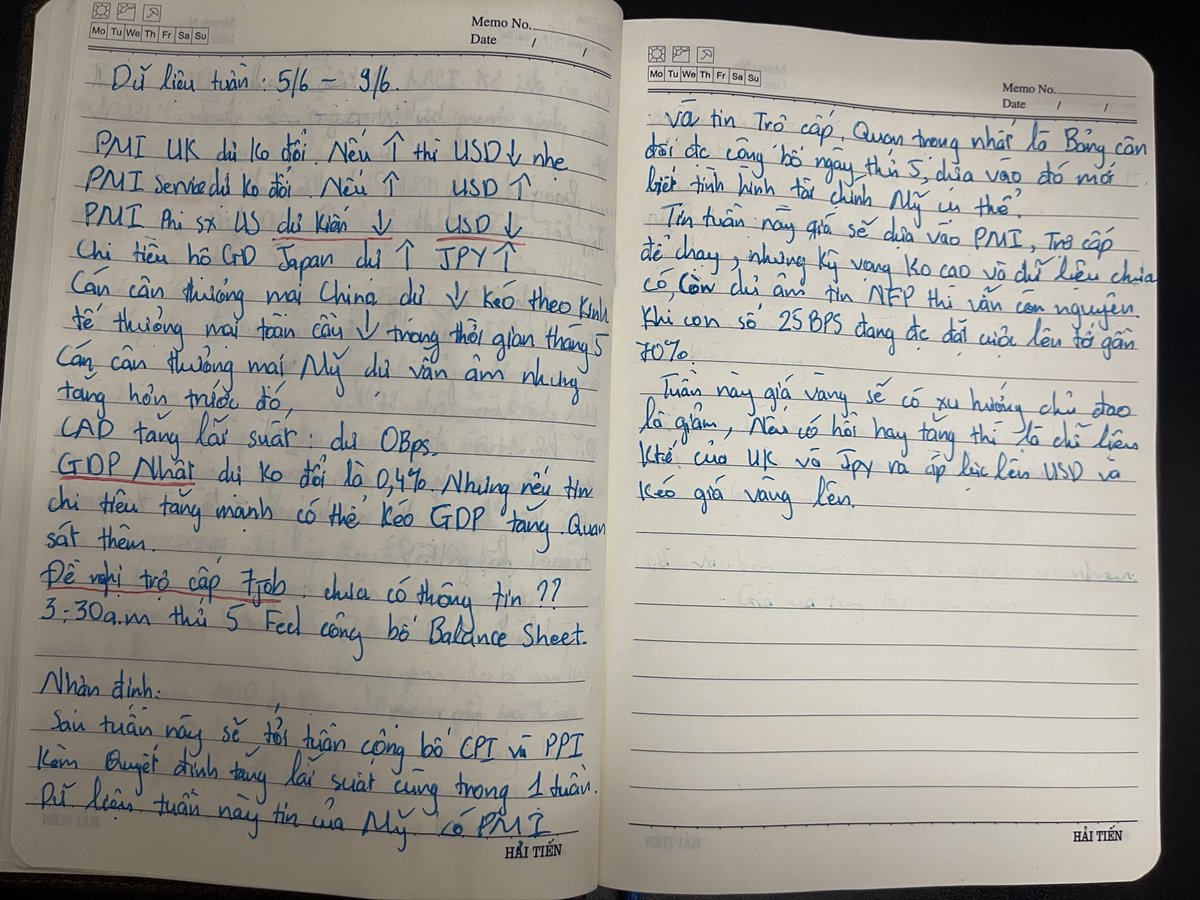 Mo Tu We Th Fr Sa Su
Memo No.
Date / /
Dữ liệu tuần : 5/6 – 9/6.
PMI UK dự ko đổi. Nếu ↑ thì USD ↓ nhe
PMI Service dự ko đổi. Nếu ↑ USD ↑
PMI Phi sx US dự kiến ↓ USD ↓
Chi tiêu hộ GĐ Japan dự ↑ JPY ↑
Cán cân thương mại China dự ↓ kéo theo Kinh
tế thương mại toàn cầu ↓ trong thời gian tháng 5
Cán cân thương mại Mỹ dự vẫn âm nhưng
tăng hơn trước đó,
CAD tăng lãi suất : dự 0Bps.
GDP Nhật dự ko đổi là 0,4%. Nhưng nếu tin
chi tiêu tăng mạnh có thể kéo GDP tăng. Quan
sát thêm.
Đề nghị trợ cấp Fjob : chưa có thông tin ??
3:30a.m thứ 5 Fed công bố Balance Sheet.
Nhận định:
Sau tuần này sẽ tới tuần công bố CPI và PPI
Kèm Quyết định tăng lãi suất cùng trong 1 tuần.
Dữ liệu tuần này tin của Mỹ có PMI
HẢI TIẾN
Mo Tu We Th Fr Sa Su
Memo No.
Date / /
và tin Trợ cấp, Quan trọng nhất là Bảng cân
đối đc công bố ngày thứ 5, dựa vào đó mới
biết tình hình tài chính Mỹ cụ thể.
Tin tuần này giá sẽ dựa vào PMI, Trợ cấp
để chạy, nhưng kỳ vọng ko cao và dữ liệu chưa
có, Còn dư âm tin NFP thì vẫn còn nguyên.
Khi con số 25BPS đang đc đặt cược lên tới gần
70%
Tuần này giá vàng sẽ có xu hướng chủ đạo
là giảm, Nếu có hồi hay tăng thì là chỉ liên
Ktế của UK và Jpy ra áp lực lên USD và
kéo giá vàng lên.
HẢI TIẾN